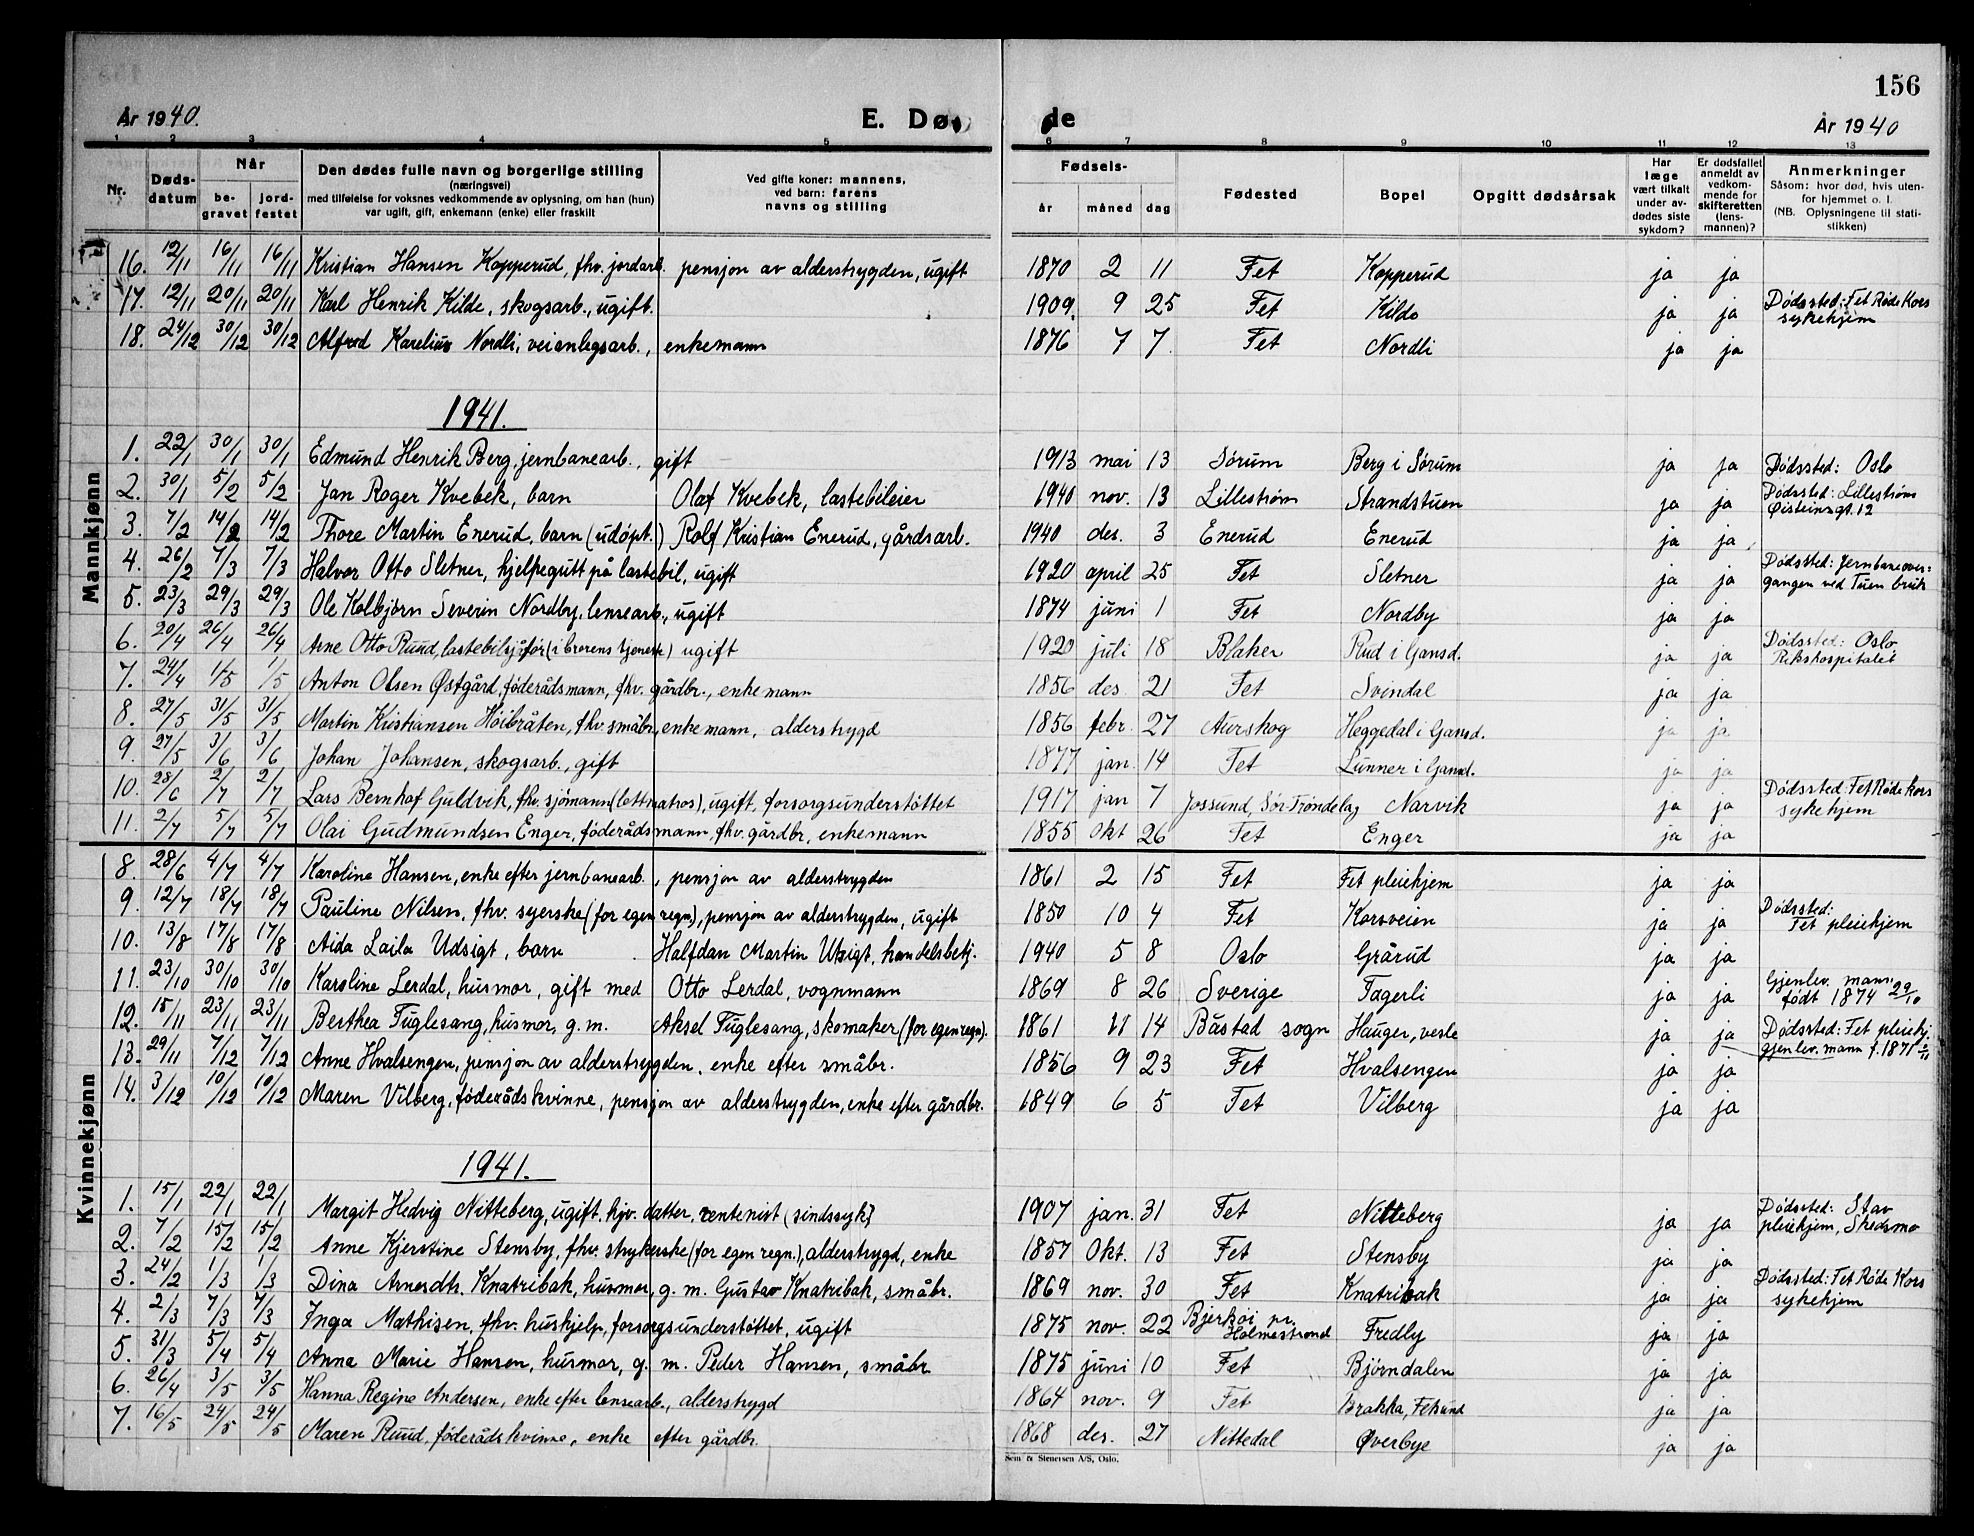 156
År 1940. E. Døde År 1940
1 2 3 4 5 6 7 8 9 10 11 12 13
Nr. Døds-datum Når be-gravet jord-festet Den dødes fulle navn og borgerlige stilling (næringsvei) med tilføielse for voksnes vedkommende av oplysning, om han (hun) var ugift, gift, enkemann (enke) eller fraskilt Ved gifte koner: mannens, ved barn: farens navns og stilling Fødsels- år måned dag Fødested Bopel Opgitt dødsårsak Har læge vært tilkalt under av-dødes siste sykdom? Er dødsfallet anmeldt av vedkom-mende for skifteretten (lens-mannen)? Anmerkninger Såsom: hvor død, hvis uten-for hjemmet o. l. (NB. Oplysningene til stati-stikken)
Mannkjønn
16. 12/11 16/11 16/11 Kristian Hansen Kopperud, fhv. jordarb. pensjon av alderstrygden, ugift 1870 2 11 Fet Kopperud ja ja
17. 12/11 20/11 20/11 Karl Henrik Kilde, skogsarb., ugift. 1909. 9 25 Fet Kilde ja ja Dødssted: Fet Røde Kors sykehjem
18. 24/12 30/12 30/12 Alfred Karelius Nordli, veianlegsarb., enkemann 1876 7 7. Fet Nordli ja ja
1941.
1. 22/1 30/1 30/1 Edmund Henrik Berg, jernbanearb., gift 1913 mai 13 Sørum Berg i Sørum ja ja Dødssted: Oslo
2. 30/1 5/2 5/2 Jan Roger Kvebek, barn Olaf Kvebek, lastebileier 1940 nov. 13 Lillestrøm Strandstuen ja ja Dødssted: Lillestrøm Øisteinsgt. 12
3. 7/2 14/2 14/2 Thore Martin Enerud, barn (udøpt.) Rolf Kristian Enerud, gårdsarb. 1940 des. 3 Enerud Enerud ja ja
4. 26/2 7/3 7/3 Halvor Otto Sletner, hjelpegutt på lastebil, ugift 1920 april 25 Fet Sletner ja ja Dødssted: Jernbaneover-gangen ved Tuen bruk
5. 23/3 29/3 29/3 Ole Kolbjørn Severin Nordby, lensearb., ugift 1874 juni 1 Fet Nordby ja ja
6. 20/4 26/4 26/4 Arne Otto Ruud, lastebilsjåfør (i brorens tjeneste) ugift 1920 juli 18 Blaker Rud i Gansd. ja ja Dødssted: Oslo Rikshospitalet
7. 24/4 1/5 1/5 Anton Olsen Østgård, føderådsmann, fhv. gårdbr., enkemann 1856 des. 21 Fet Svindal ja ja
8. 27/5 31/5 31/5 Martin Kristiansen Höibråten, fhv. småbr., enkemann, alderstrygd 1856 febr. 27 Aurskog Heggedal i Gansd. ja ja
9. 27/5 3/6 3/6 Johan Johansen, skogsarb., gift 1877 jan. 14 Fet Lunner i Gansd. ja ja
10. 28/6 2/7 2/7 Lars Bernhof Guldvik, fhv. sjømann (lettmatros), ugift, forsorgsunderstöttet 1917 jan 7 Jossund, Sør-Trøndelag Narvik ja ja Dødssted: Fet Røde kors sykehjem
11. 2/7 5/7 5/7 Olai Gudmundsen Enger, føderådsmann, fhv. gårdbr., enkemann 1855 okt 26 Fet Enger ja ja
Kvinnekjønn
8. 28/6 4/7 4/7 Karoline Hansen, enke efter jernbanearb., pensjon av alderstrygden 1861 2 15 Fet Fet pleiehjem ja ja
9. 12/7 18/7 18/7 Pauline Nilsen, fhv. syerske (for egen regn), pensjon av alderstrygden, ugift 1850 10 4 Fet Korsveien ja ja Dødssted: Fet pleiehjem
10. 13/8 17/8 17/8 Aida Laila Udsigt, barn Halfdan Martin Utsigt, handelsbetj. 1940 5 8 Oslo Grårud ja ja
11. 23/10 30/10 30/10 Karoline Lerdal, husmor, gift med Otto Lerdal, vognmann 1869 8 26 Sverige Fagerli ja ja Gjenlev. mann født 1874 29/10
12. 15/11 23/11 23/11 Berthea Fuglesang, husmor, g. m. Aksel Fuglesang, skomaker (for egen regn). 1861 11 14 Båstad sogn Hauger, vesle ja ja Dødssted: Fet pleiehj. gjenlev. mann f. 1871
13. 29/11 7/12 7/12 Anne Hvalsengen, pensjon av alderstrygden, enke efter småbr. 1856 9 23 Fet Hvalsengen ja ja
14. 3/12 10/12 10/12 Maren Vilberg, føderådskvinne, pensjon av alderstrygden, enke efter gårdbr. 1849 6 5 Fet Vilberg ja ja
1941.
1. 15/1 22/1 22/1 Margit Hedvig Nitteberg, ugift, hjv. datter, rentenist (sindssyk) 1907 jan. 31 Fet Nitteberg ja ja Dødssted: Stav pleiehjem, Skedsmo
2. 7/2 15/2 15/2 Anne Kjerstine Stensby, fhv. strykerske (for egen regn.), alderstrygd, enke 1857 Okt. 13 Fet Stensby ja ja
3. 24/2 1/3 1/3 Dina Arnerdth Knatribak, husmor, g. m. Gustav Knatribak, småbr. 1869 nov. 30 Fet Knatribak ja ja Dødssted: Fet Røde Kors sykehjem
4. 2/3 7/3 7/3 Inga Mathisen, fhv. hushjelp, forsorgsunderstöttet, ugift 1875 nov. 22 Bjerköi pr. Holmestrand Fredly ja ja
5. 31/3 5/4 5/4 Anna Marie Hansen, husmor, g. m. Peder Hansen, småbr 1875 juni 10 Fet Bjørndalen ja ja
6. 26/4 3/5 3/5 Hanna Regine Andersen, enke efter lensearb., alderstrygd 1864 nov. 9 Fet Brakka, Fetsund ja ja
7. 16/5 24/5 24/5 Maren Ruud, føderådskvinne, enke efter gårdbr. 1868 des. 27 Nittedal Øverbye ja ja
Sem & Stenersen A/S, Oslo.